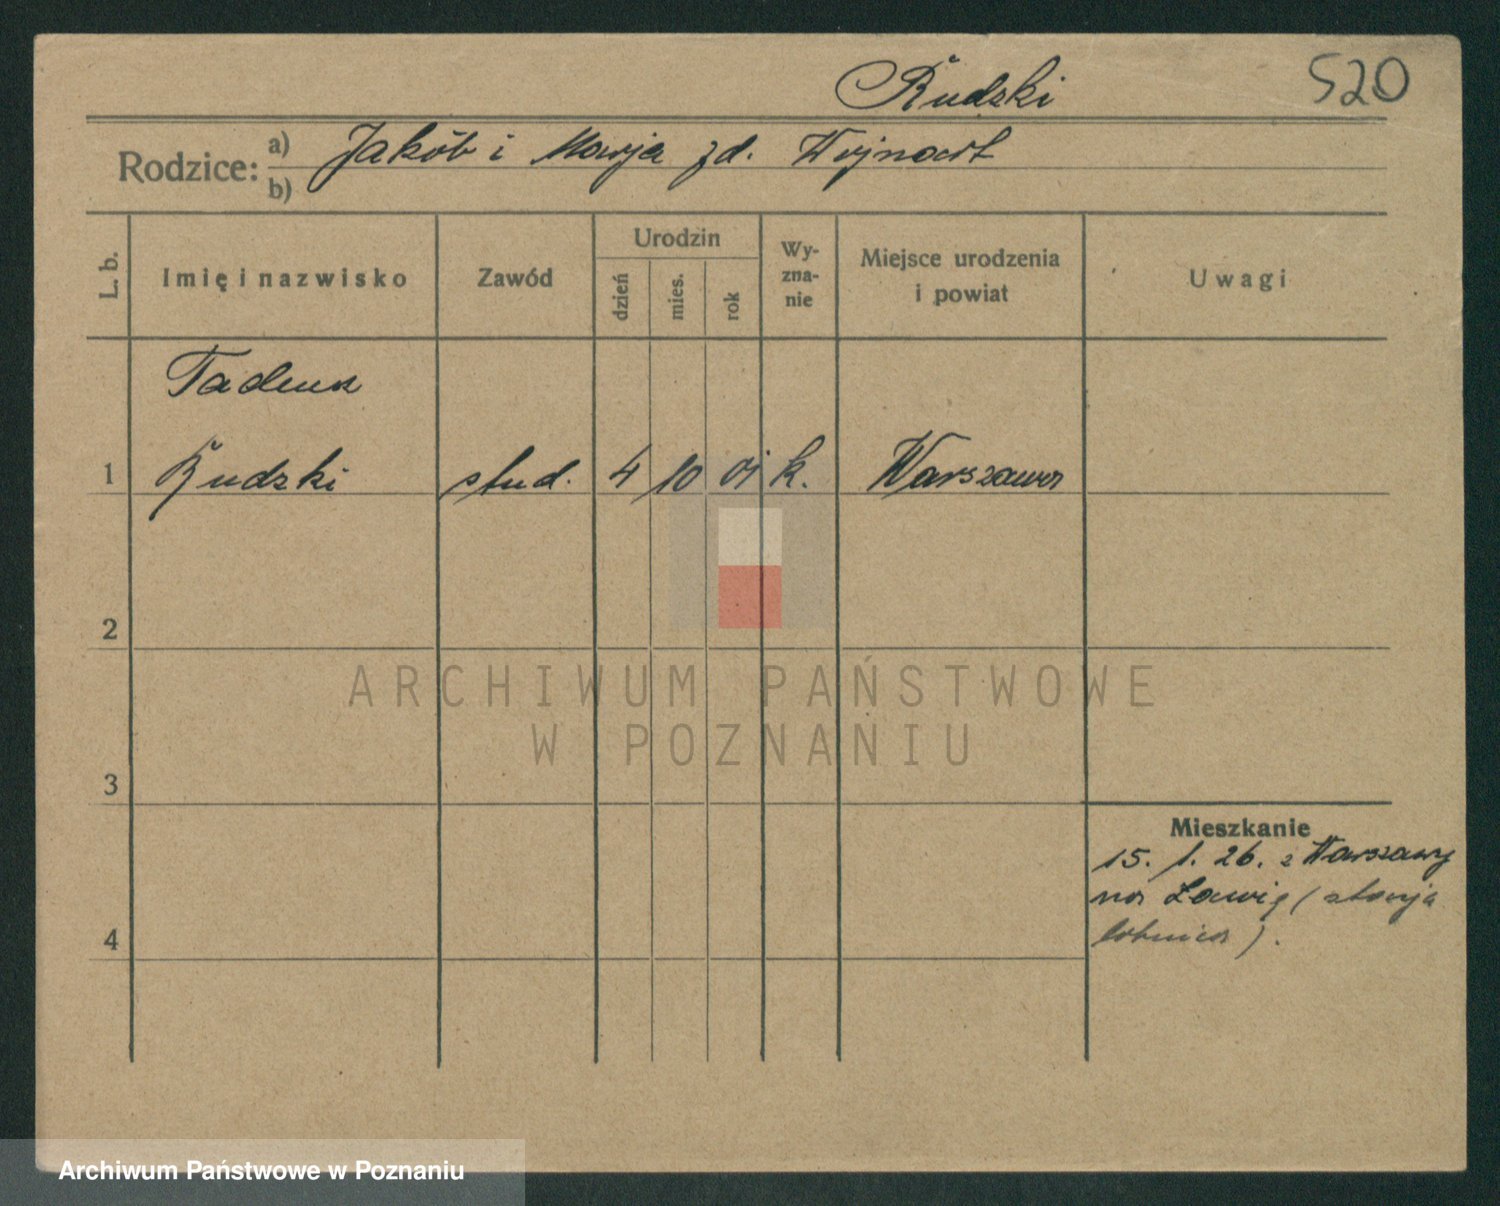 Rudzki
520
Rodzice: a) Jakób i Marja zd. Wojnart
b)
L. b.
Imię i nazwisko
Zawód
Urodzin
dzień
mies.
rok
Wy-
zna-
nie
Miejsce urodzenia
i powiat
Uwagi
Tadeusz
1 Rudzki stud. 4 10 01 k. Warszawa
2
3
4
Mieszkanie
15. 1. 26. z Warszawy
na Ławicę (stacja
lotnicza).
ARCHIWUM PAŃSTWOWE
W POZNANIU
Archiwum Państwowe w Poznaniu